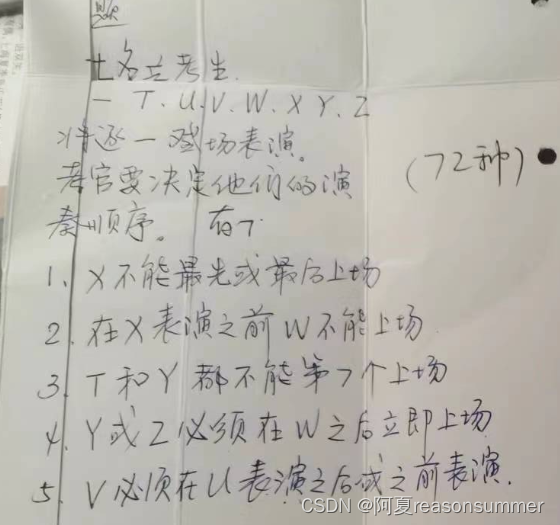 题
七名立考生.
一 T. U. V. W. X Y. Z
将逐一登场表演。
考官要决定他们的演
奏顺序。 有下
(72种)
1. X不能最先或最后上场
2. 在X表演之前W不能上场
3. T和Y都不能第7个上场
4. Y或Z必须在W之后立即上场
5. V必须在U表演之后或之前表演.
CSDN @阿夏reasonsummer